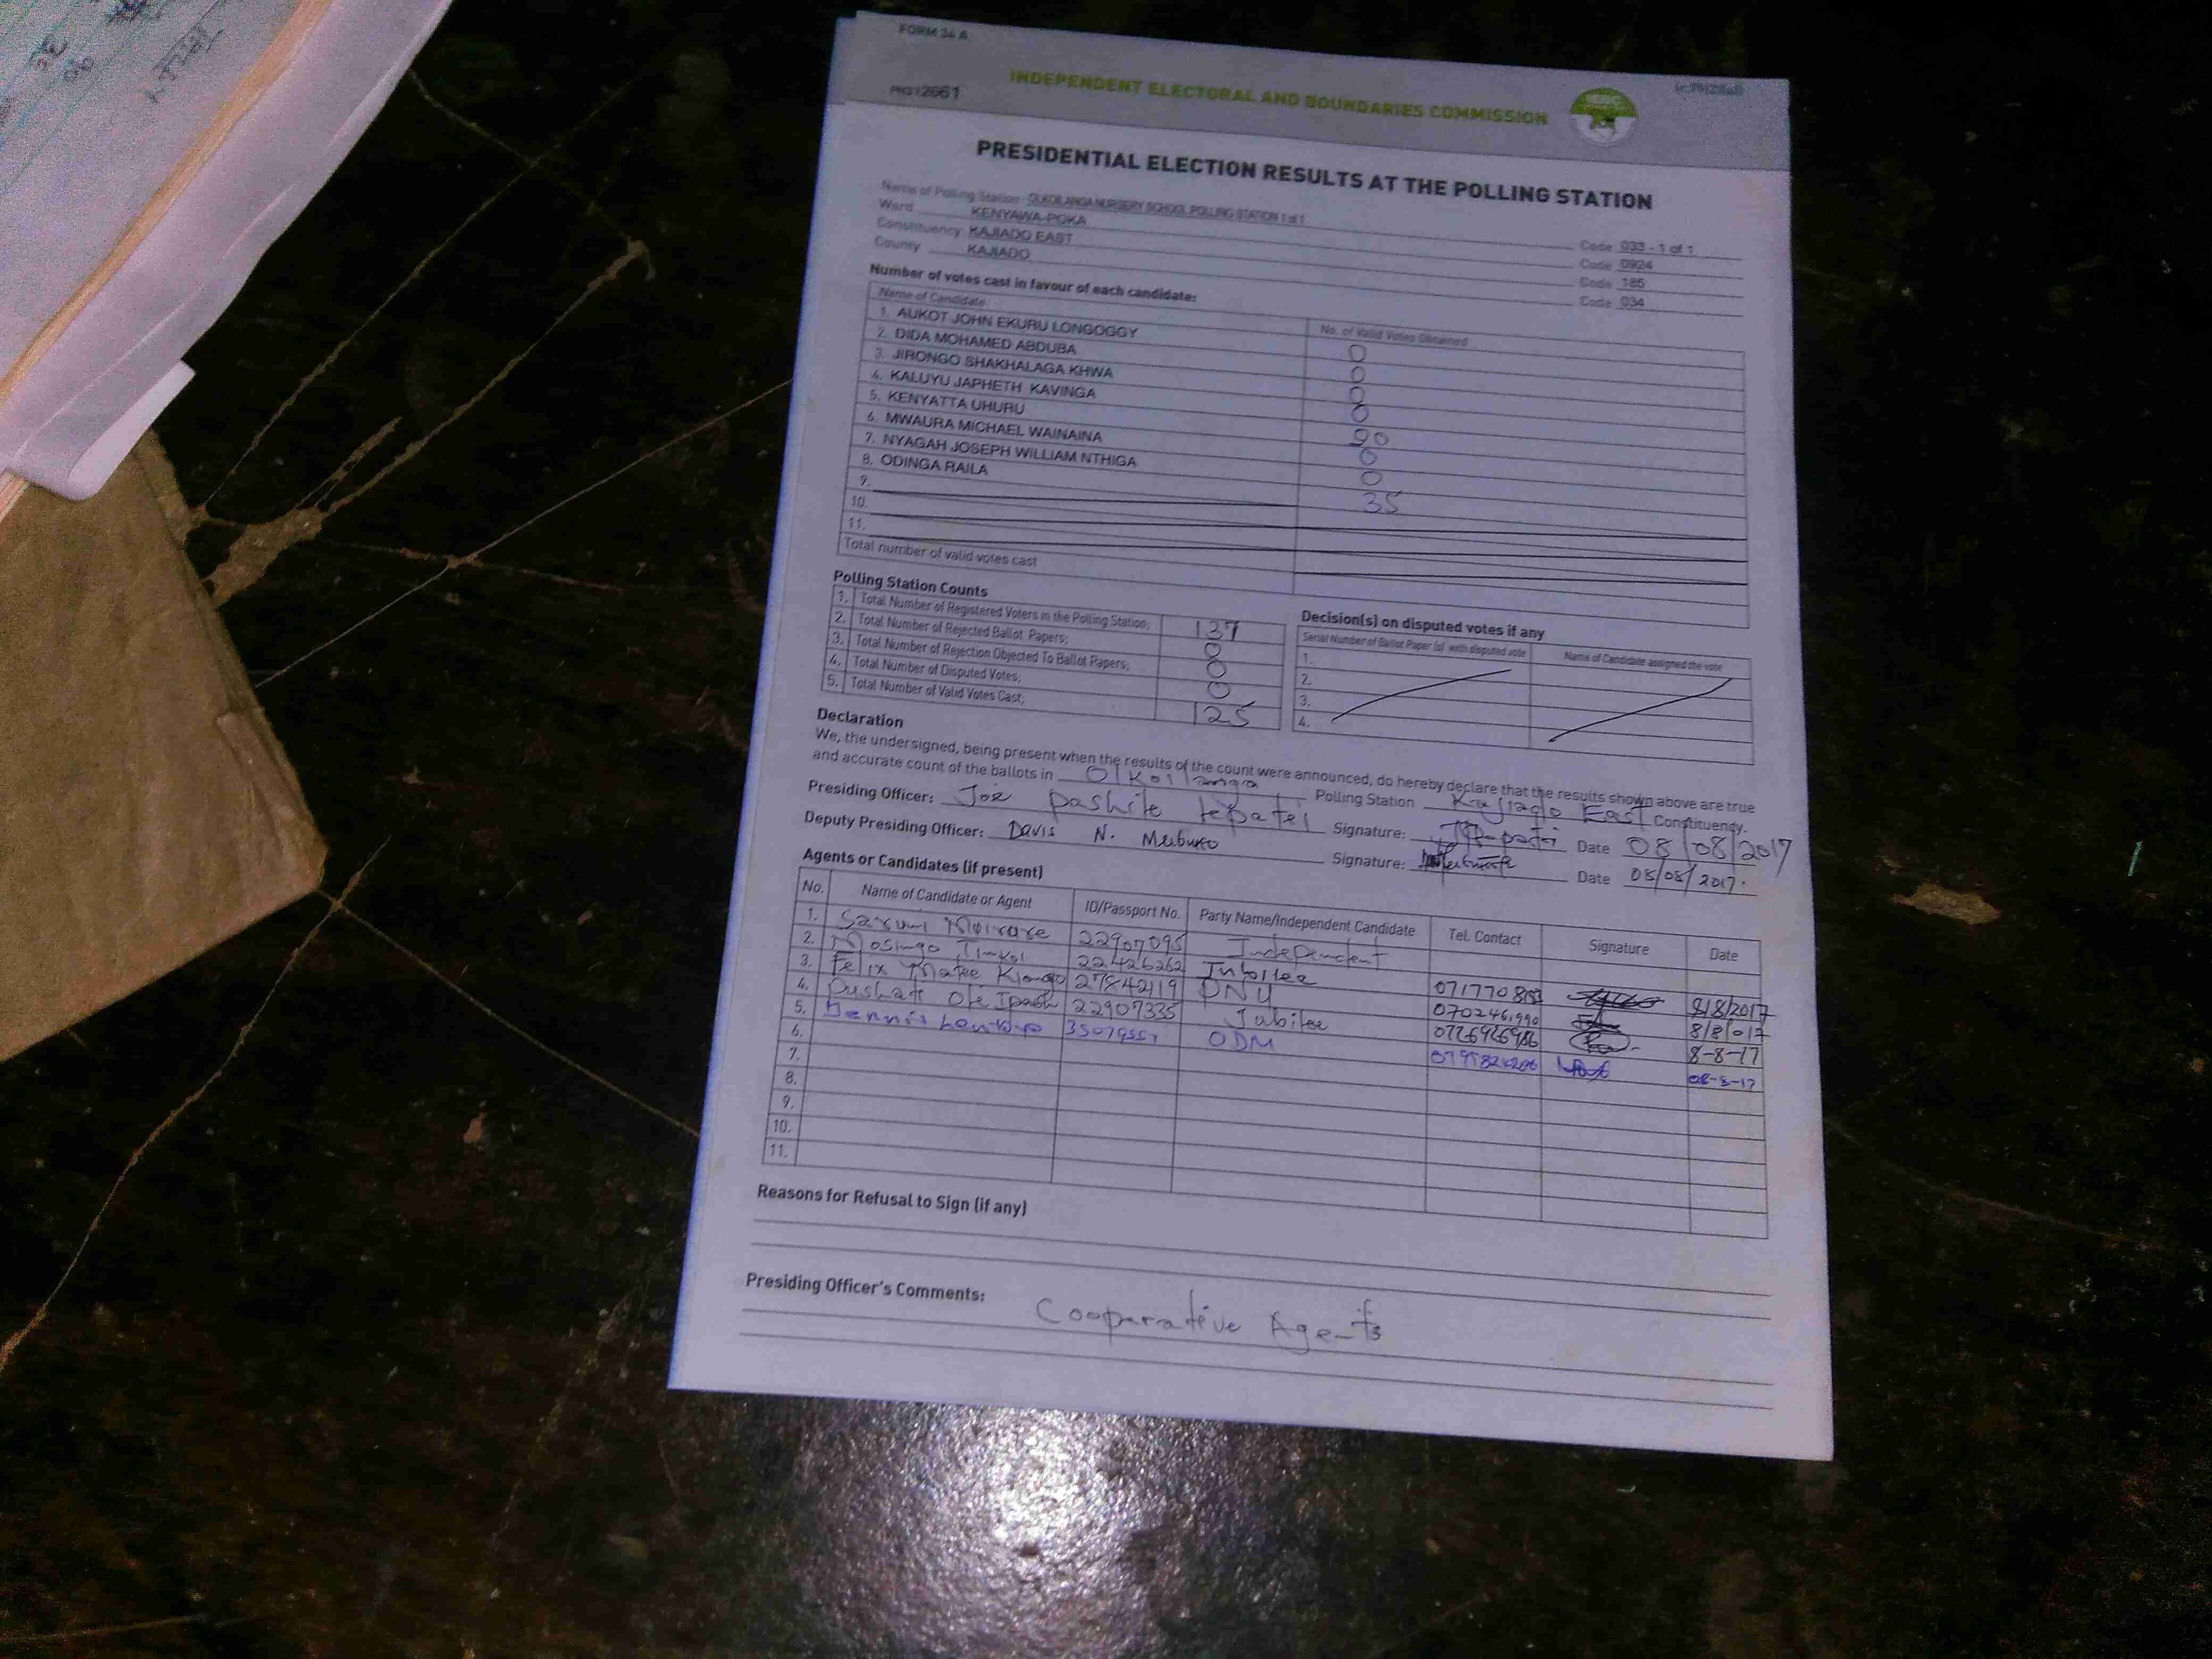 FORM 34 A
INDEPENDENT ELECTORAL AND BOUNDARIES COMMISSION
PRESIDENTIAL ELECTION RESULTS AT THE POLLING STATION
Name of Polling Station OLKOILANGA NURSERY SCHOOL POLLING STATION 1 of 1 Code 033 - 1 of 1
Ward KENYAWA-POKA Code 0924
Constituency KAJIADO EAST Code 185
County KAJIADO Code 034
Number of votes cast in favour of each candidate:
Name of Candidate No. of Valid Votes Obtained
1. AUKOT JOHN EKURU LONGOGGY 0
2. DIDA MOHAMED ABDUBA 0
3. JIRONGO SHAKHALAGA KHWA 0
4. KALUYU JAPHETH KAVINGA 0
5. KENYATTA UHURU 90
6. MWAURA MICHAEL WAINAINA 0
7. NYAGAH JOSEPH WILLIAM NTHIGA 0
8. ODINGA RAILA 35
9.
10.
11.
Total number of valid votes cast
Polling Station Counts
1. Total Number of Registered Voters in the Polling Station; 137
2. Total Number of Rejected Ballot Papers; 0
3. Total Number of Rejection Objected To Ballot Papers; 0
4. Total Number of Disputed Votes; 0
5. Total Number of Valid Votes Cast; 125
Decision(s) on disputed votes if any
Serial Number of Ballot Paper (s) with disputed vote Name of Candidate assigned the vote
1.
2.
3.
4.
Declaration
We, the undersigned, being present when the results of the count were announced, do hereby declare that the results shown above are true
and accurate count of the ballots in Olkoilanga Polling Station Kajiado East Constituency.
Presiding Officer: Joe Pashile Signature: Date 08/08/2017
Deputy Presiding Officer: Davis N. Signature: Date 08/08/2017.
Agents or Candidates (if present)
No. Name of Candidate or Agent ID/Passport No. Party Name/Independent Candidate Tel. Contact Signature Date
1. 22907095 Independent
2. Mosingo 22426262 Jubilee 8/8/2017
3. Felix 27842119 8/8/017
4. 22907335 Jubilee 8-8-17
5. Dennis ODM 08-8-17
6.
7.
8.
9.
10.
11.
Reasons for Refusal to Sign (if any)
Presiding Officer's Comments:
Cooparative Agents